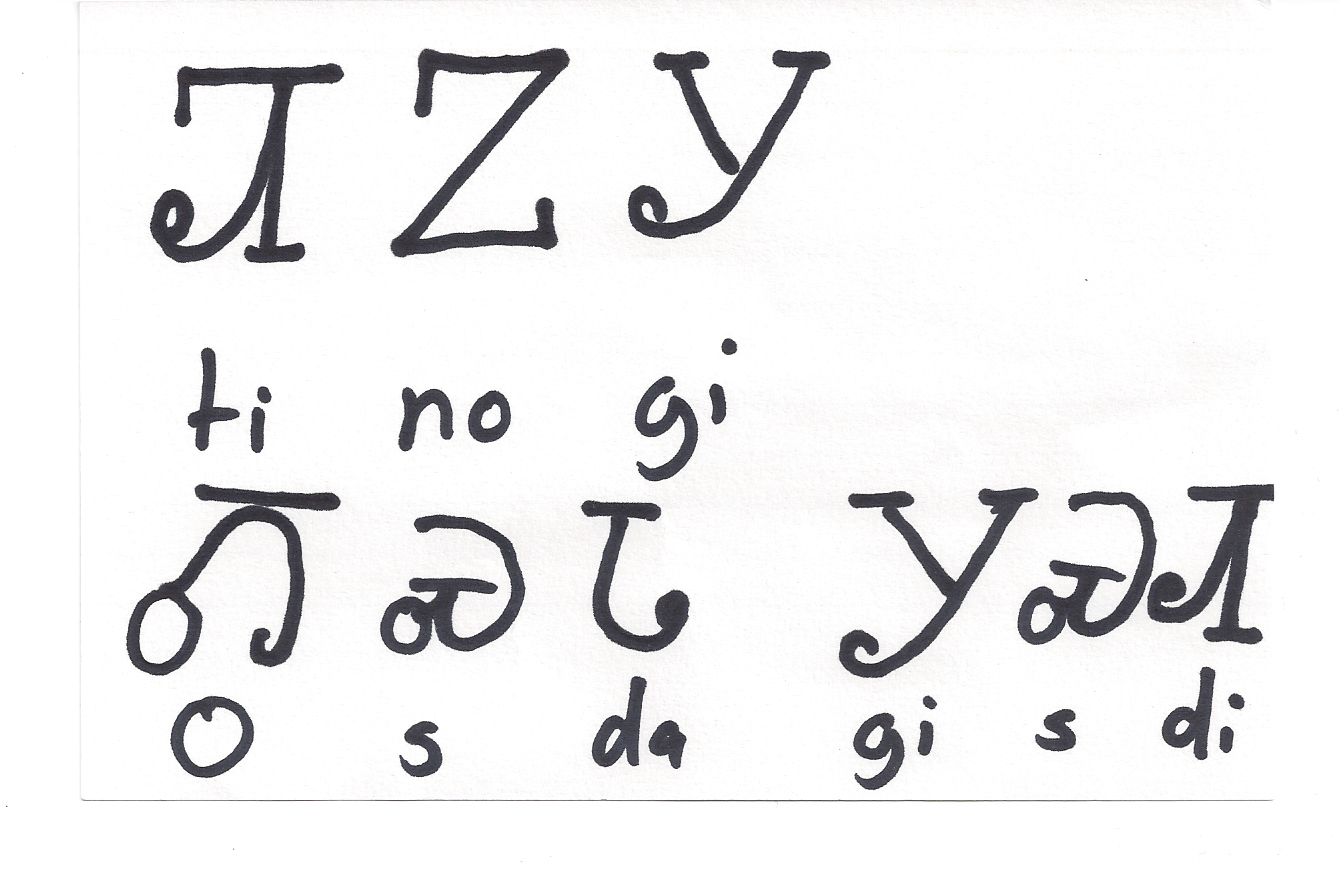 ᏘᏃᎩ
ti no gi
ᎣᏍᏓ ᎩᏍᏗ
O s da gi s di